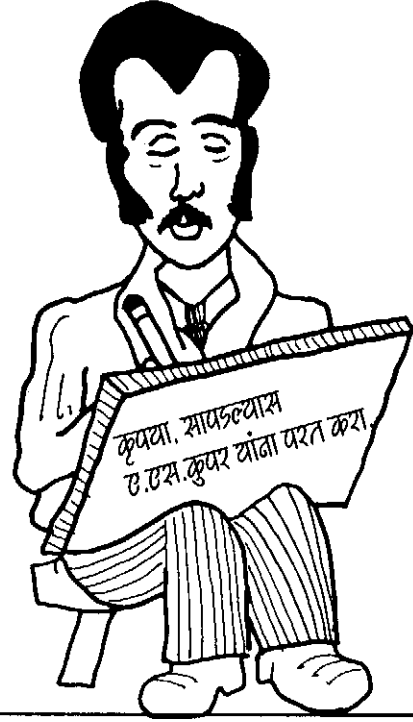 कृपया, सापडल्यास
ए.एस.कुपर यांना परत करा.